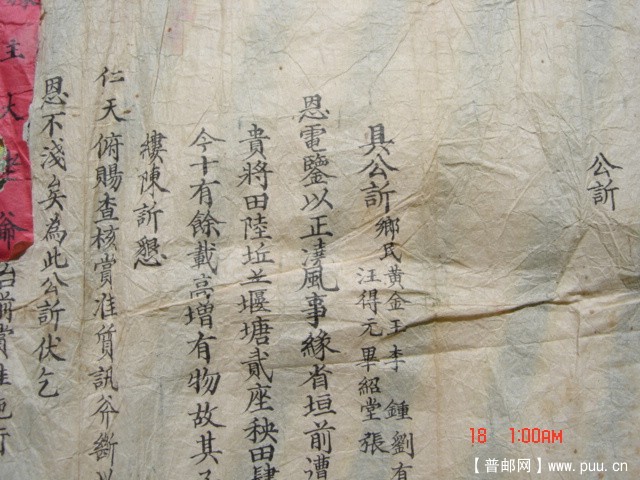 公訢
具公訢鄉民黃金玉李鍾劉有
汪得元畢紹堂張
恩電鑒以正澆風事緣省垣前遭
貴將田陸坵並堰塘貳座秧田肆
今十有餘載高增有物故其子
縷陳訢懇
仁天俯賜查核賞准質訊斧斷以
恩不淺矣為此公訢伏乞
主大老爺台前賞准施行
18 1:00AM
【普邮网】www.puu.cn